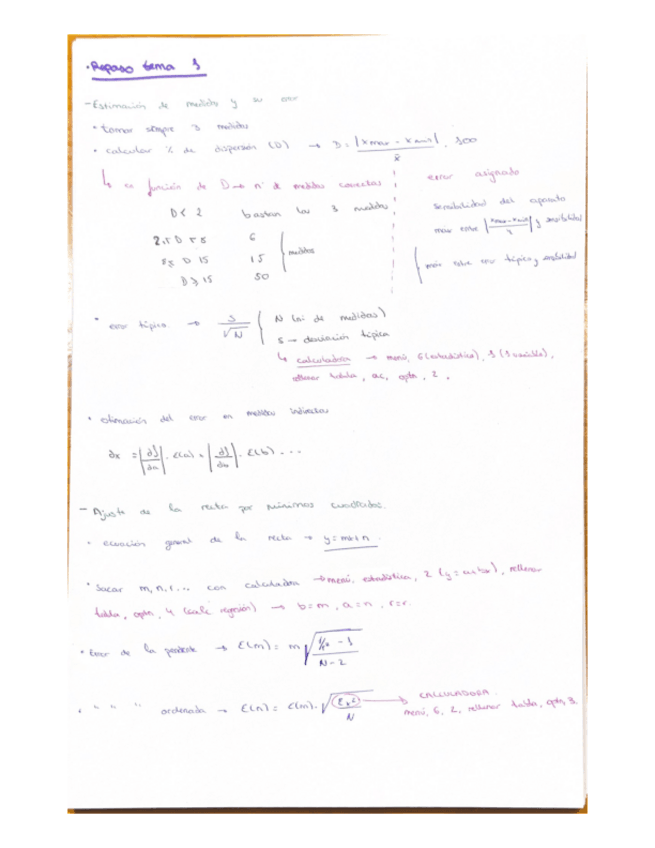 · Repaso tema 1
- Estimación de medidas y su error
· tomar siempre 3 medidas
· calcular % de dispersión (D) → D = |Xmax - Xmin| / x̄ . 100
↳ en función de D → nº de medidas correctas
D < 2 bastan las 3 medidas
2 ≤ D ≤ 8 6
8 ≤ D 15 15 } medidas
D ≥ 15 50
error asignado
sensibilidad del aparato
max entre |Xmax - Xmin / 4| y sensibilidad
max entre error típico y sensibilidad
· error típico → s / √N { N (nº de medidas)
s → desviación típica
↳ calculadora → menú, 6 (estadística), 1 (1 variable),
rellenar tabla, ac, optn, 2.
· estimación del error en medidas indirectas
∂x = |∂f/∂a| . ε(a) + |∂f/∂b| . ε(b) ...
- Ajuste de la recta por mínimos cuadrados.
· ecuación general de la recta → y = mx + n
· Sacar m, n, r... con calculadora → menú, estadística, 2 (y = a+bx), rellenar
tabla, optn, 4 (calc regresión) → b = m, a = n, r = r.
· Error de la pendiente → ε(m) = m √(1/r² - 1 / N - 2)
· " " " ordenada → ε(n) = ε(m) . √(Σx² / N) → CALCULADORA
menú, 6, 2, rellenar tabla, optn, 3.